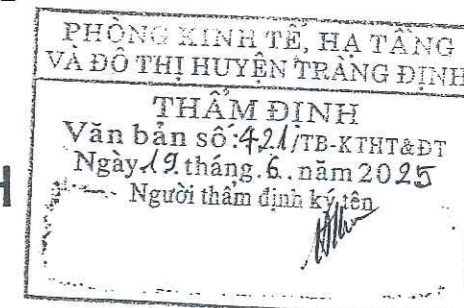 PHÒNG KINH TẾ, HẠ TẦNG
VÀ ĐÔ THỊ HUYỆN TRÀNG ĐỊNH
THẨM ĐỊNH
Văn bản số:421/TB-KTHT&ĐT
Ngày.19.tháng.6..năm 2025
Người thẩm định ký tên
H